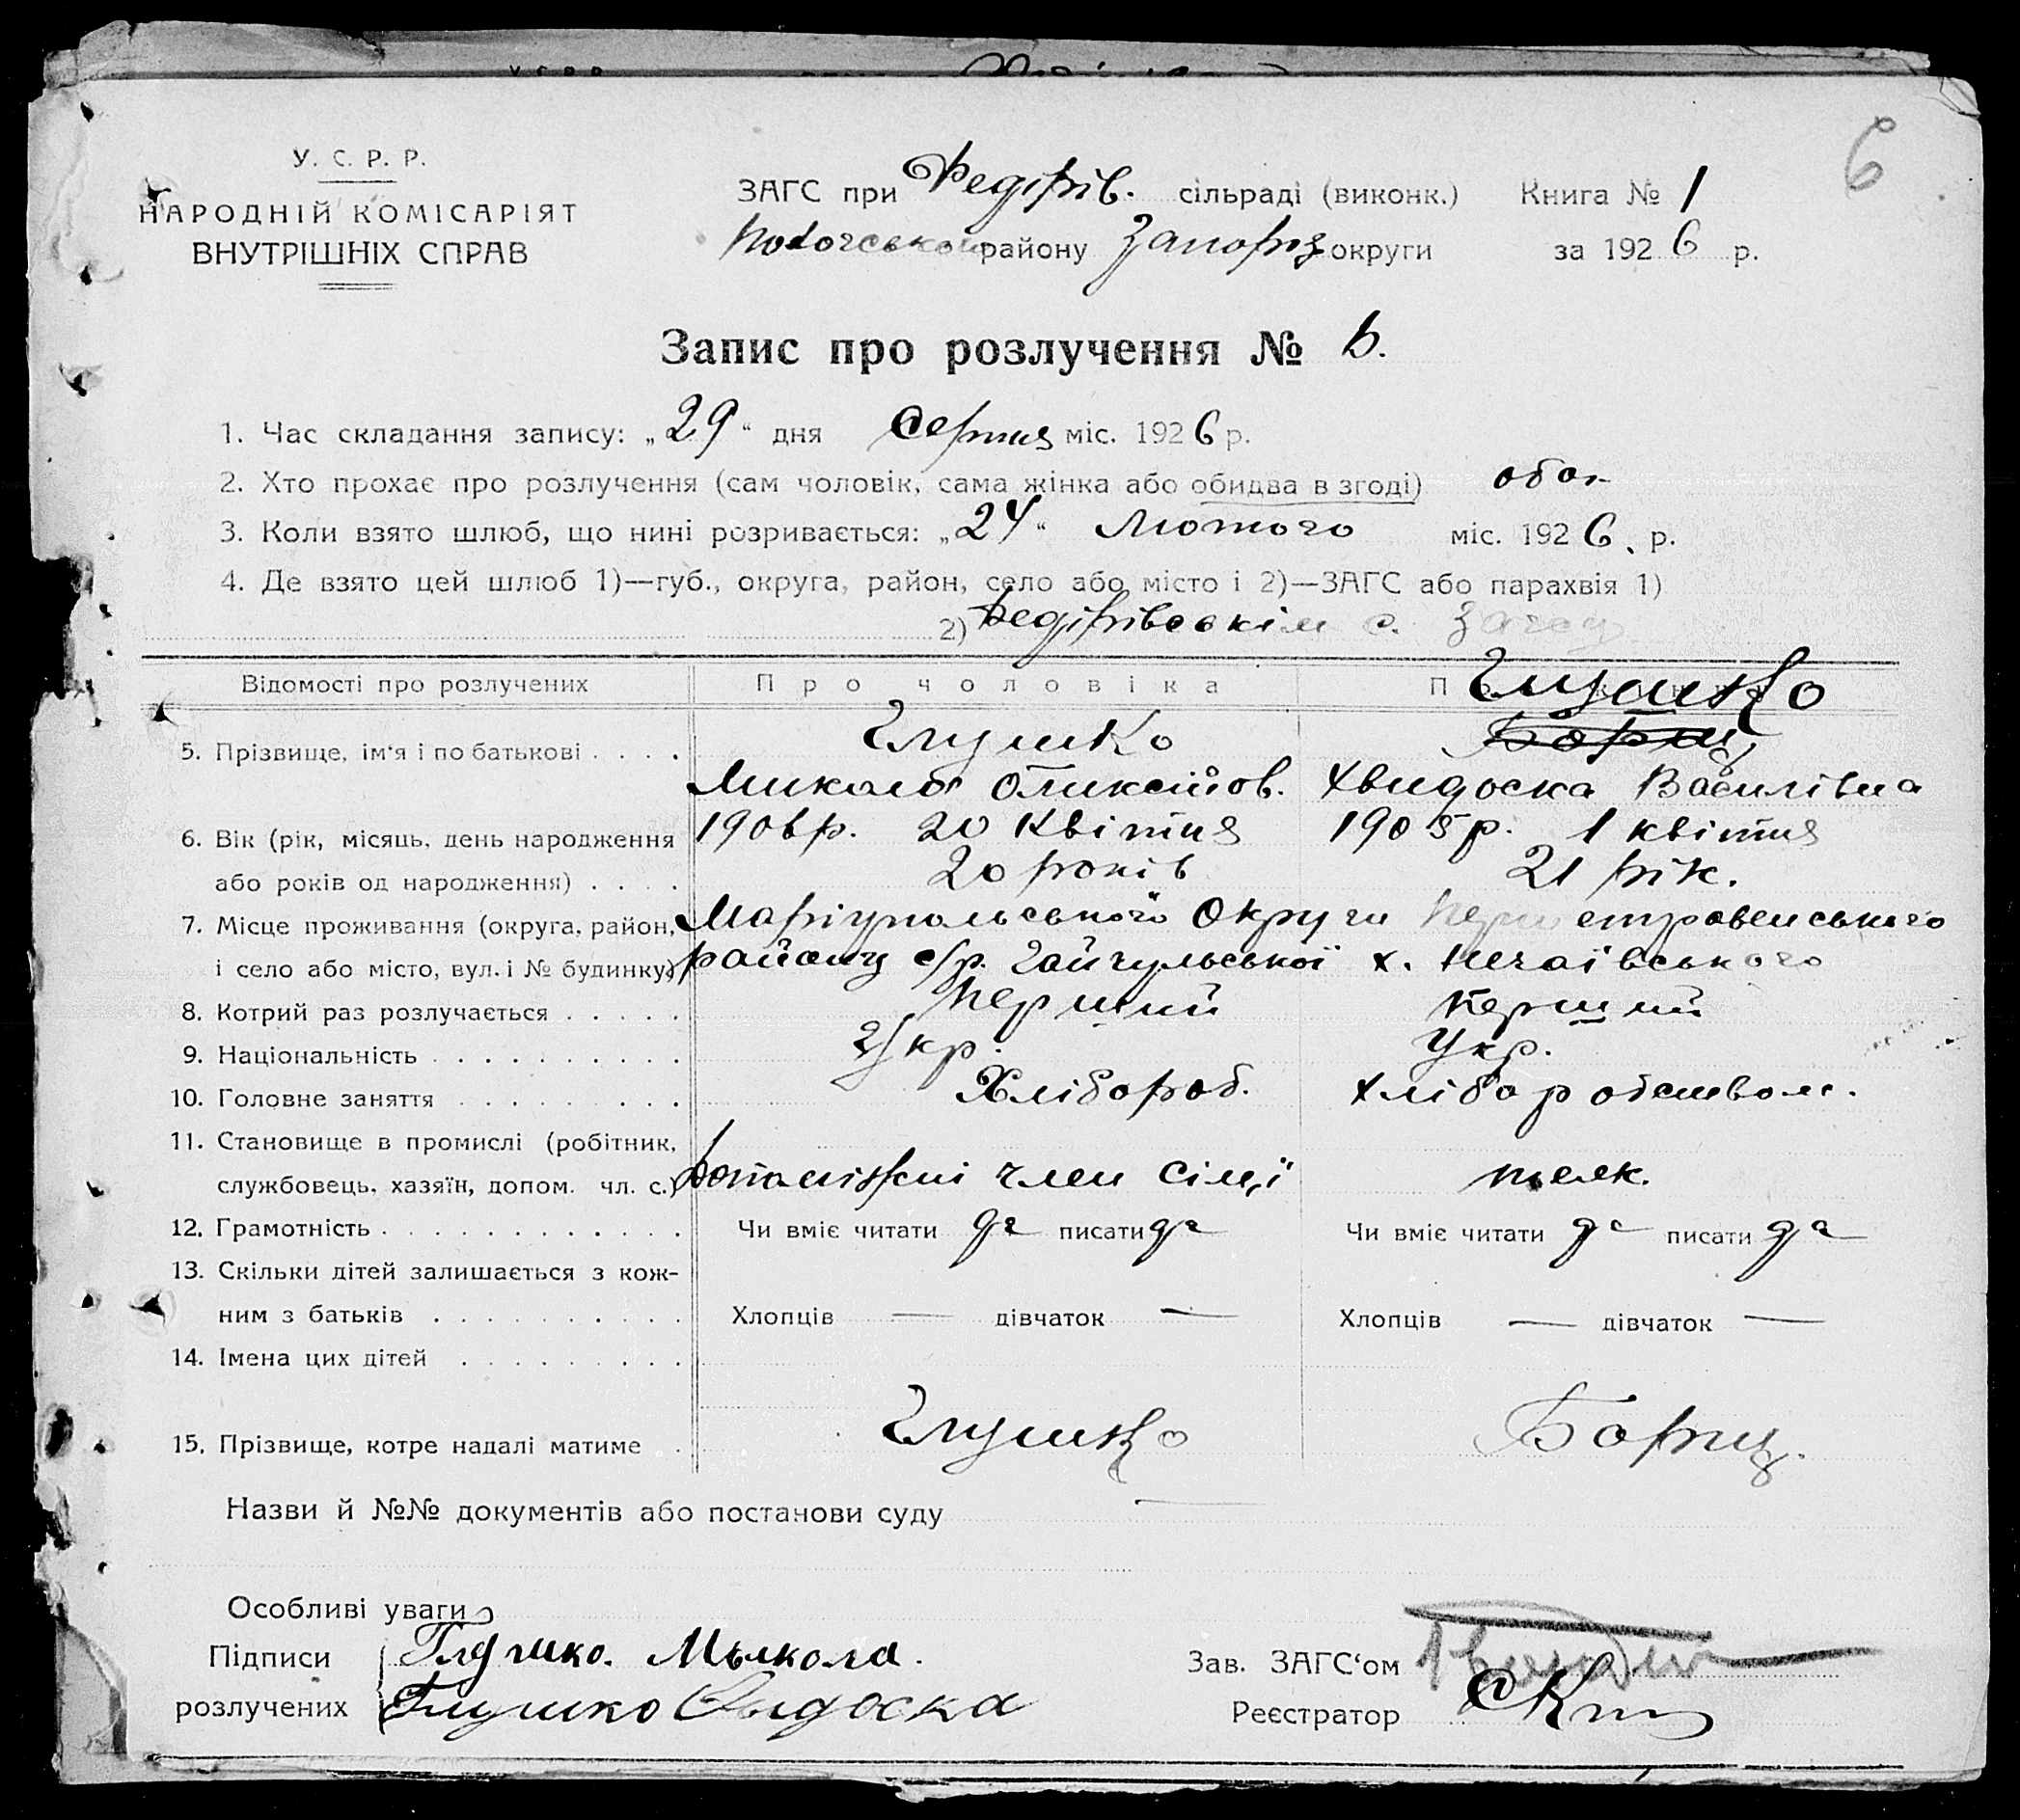 6
У. С. Р. Р.
НАРОДНІЙ КОМІСАРІЯТ
ВНУТРІШНІХ СПРАВ
ЗАГС при Федірів. сільраді (виконк.) Книга № 1
району Запоріз округи за 1926 р.
Запис про розлучення № 6.
1. Час складання запису: „29“ дня Серпня міс. 1926 р.
2. Хто прохає про розлучення (сам чоловік, сама жінка або обидва в згоді) обоє
3. Коли взято шлюб, що нині розривається: „24“ Лютого міс. 1926. р.
4. Де взято цей шлюб 1)—губ., округа, район, село або місто і 2)—ЗАГС або парахвія 1)
2) Федірівскім с. Загсу
Відомості про розлучених Про чоловіка Глушко
5. Прізвище, ім‘я і по батькові . . . . Глушко Борщ
Микола Оликсійов. Хвидоска Василівна
6. Вік (рік, місяць, день народження 1906 р. 20 Квітня 1905 р. 1 квітня
або років од народження) . . . . 20 років 21 рік.
7. Місце проживання (округа, район, Маріупольської Округи
і село або місто, вул. і № будинку) району с/р. Гайчульської х. Нечаївського
8. Котрий раз розлучається . . . . . Перший Перший
9. Національність . . . . . . . . . . Укр. Укр.
10. Головне заняття . . . . . . . . . Хлібороб. Хліборобством.
11. Становище в промислі (робітник,
службовець, хазяїн, допом. чл. с.) Допоміжні член сімї теж.
12. Грамотність . . . . . . . . . . . . Чи вміє читати да писати да Чи вміє читати да писати да
13. Скільки дітей залишається з кож-
ним з батьків . . . . . . . . . . Хлопців — дівчаток — Хлопців — дівчаток —
14. Імена цих дітей . . . . . . . . .
15. Прізвище, котре надалі матиме . Глушко Борщ.
Назви й №№ документів або постанови суду —
Особливі уваги
Підписи Глушко. Мыкола.
розлучених Глушко Хвидоска
Зав. ЗАГС‘ом
Реєстратор